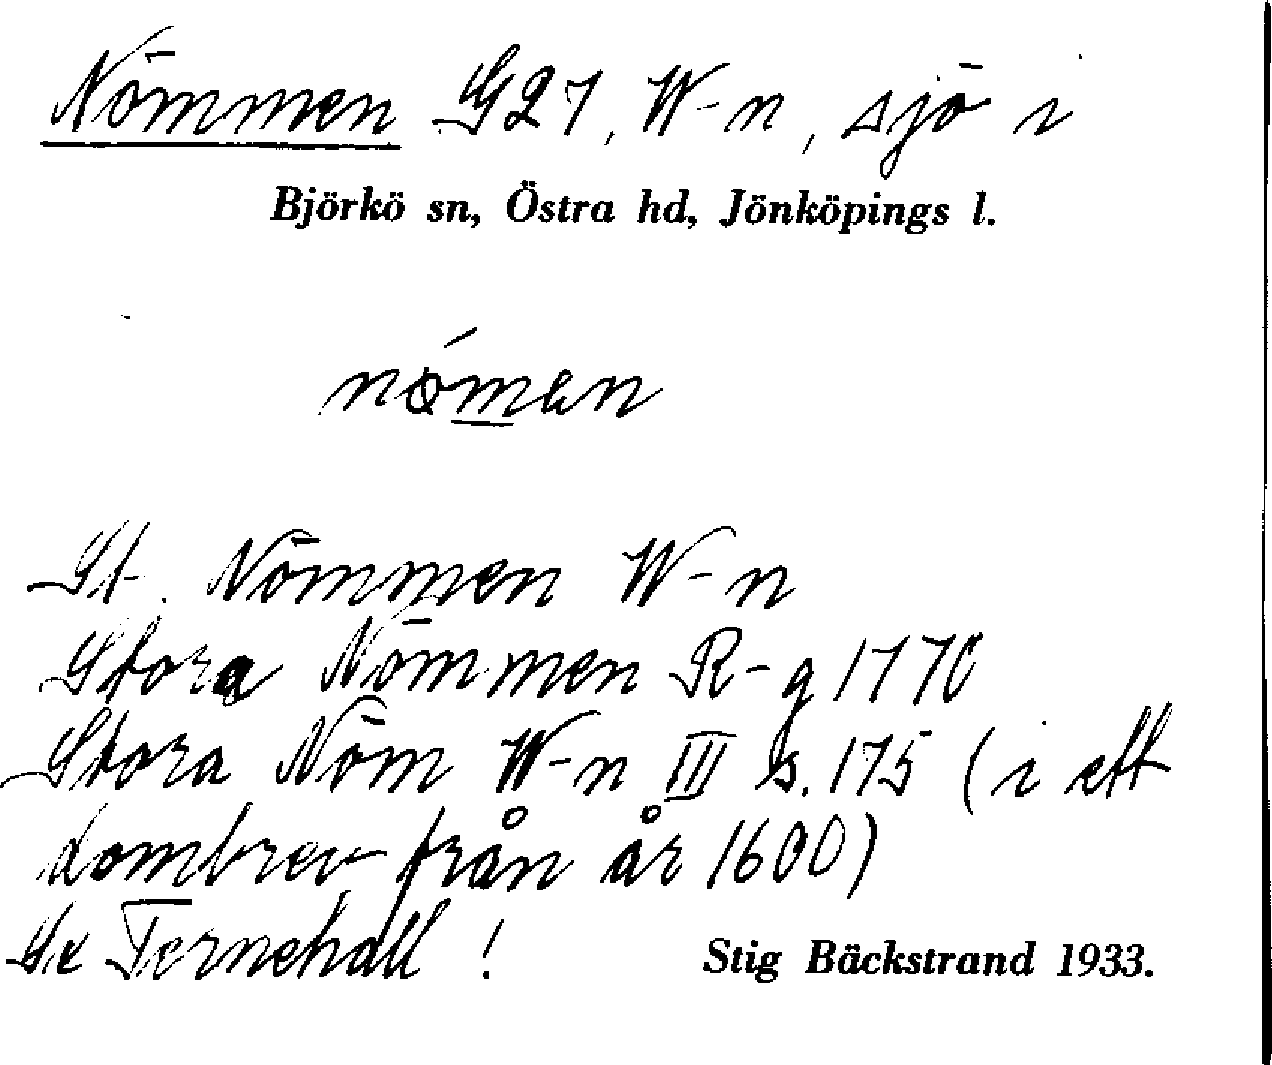 Nömmen G27, W-n, sjö i
Björkö sn, Östra hd, Jönköpings l.
nǿmen
St. Nömmen W-n
Stora Nömmen R-g 1770
Stora Nöm W-n III s. 175 (i ett
dombrev från år 1600)
Se Ternehall!
Stig Bäckstrand 1933.